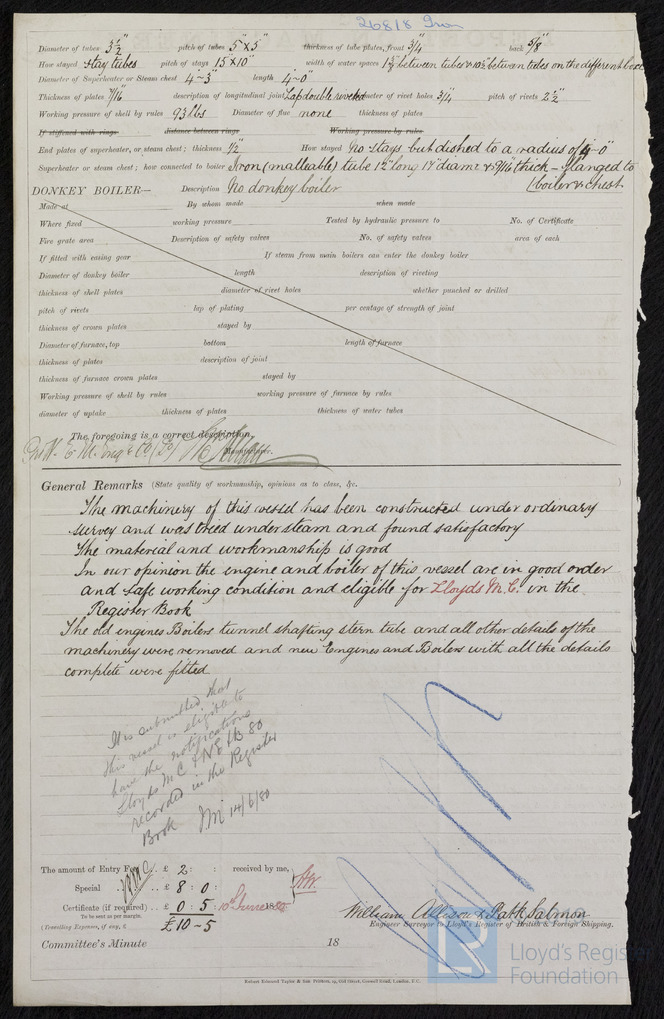 26818 Iron
Diameter of tubes 3½" pitch of tubes 5" x 5" thickness of tube plates, front 3/4" back 5/8"
How stayed stay tubes pitch of stays 15" x 10" width of water spaces between tubes & 10½" between tubes on the different
Diameter of Superheater or Steam chest 4'-3" length 4'-0"
Thickness of plates 7/16" description of longitudinal joint Lap double riveted diameter of rivet holes 3/4" pitch of rivets 2½"
Working pressure of shell by rules 93 lbs Diameter of flue none thickness of plates
If stiffened with rings distance between rings Working pressure by rules
End plates of superheater, or steam chest; thickness ½" How stayed No stays but dished to a radius of 4'-0"
Superheater or steam chest; how connected to boiler Iron (malleable) tube 12" long 17" diamr & 9/16" thick - flanged to
DONKEY BOILER— Description No donkey boiler (boiler & chest.
Made at By whom made when made
Where fixed working pressure Tested by hydraulic pressure to No. of Certificate
Fire grate area Description of safety valves No. of safety valves area of each
If fitted with easing gear If steam from main boilers can enter the donkey boiler
Diameter of donkey boiler length description of riveting
thickness of shell plates diameter of rivet holes whether punched or drilled
pitch of rivets lap of plating per centage of strength of joint
thickness of crown plates stayed by
Diameter of furnace, top bottom length of furnace
thickness of plates description of joint
thickness of furnace crown plates stayed by
Working pressure of shell by rules working pressure of furnace by rules
diameter of uptake thickness of plates thickness of water tubes
The foregoing is a correct description,
Manufacturer.
General Remarks (State quality of workmanship, opinions as to class, &c. )
The machinery of this vessel has been constructed under ordinary
survey and was tried under steam and found satisfactory
The material and workmanship is good
In our opinion the engine and boiler of this vessel are in good order
and safe working condition and eligible for Lloyds M.C. in the
Register Book
The old engines Boilers tunnel shafting stern tube and all other details of the
machinery were removed and new Engines and Boilers with all the details
complete were fitted
It is submitted that
this vessel is eligible to
have the notifications
Lloyds M.C & N.E & B 80
recorded in the Register
Book 14/6/80
The amount of Entry Fee .. £ 2 : : received by me,
Special .. £ 8 : 0 :
Certificate (if required) .. £ 0 : 5 : 10th June 18 80
To be sent as per margin.
(Travelling Expenses, if any, £ ) £10-5
William Allison & Patk Salmon
Engineer Surveyor to Lloyd's Register of British & Foreign Shipping.
Committee's Minute 18
Robert Edmund Taylor & Son Printers, 19, Old Street, Goswell Road, London, E.C.
Lloyd's Register
Foundation